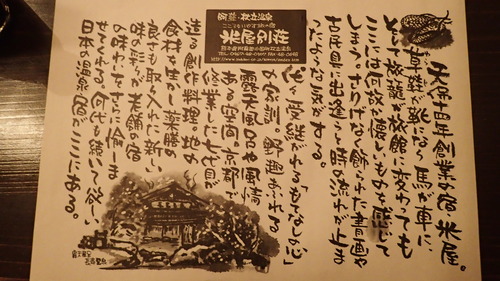 天保十四年創業の宿米屋。
草鞋が靴になり馬が車に
そして旅籠が旅館に変わっても
ここには何故か懐しいものを感じて
しまう。さりげなく飾られた書画や
古民具に出逢うと時の流れが止ま
ったような気がする。
阿蘇・杖立温泉
米屋別荘
代々
の家訓。野趣あふれる
露天風呂や風情
ある客間。京都で
修業した七代目が
造る創作料理。地の
食材を生かし薬膳の
良さも取り入れた新しい
味の彩りが老舗の宿
の味わいをさらに愉しま
せてくれる。何代も続いて欲しい
日本の温泉宿がここにある。